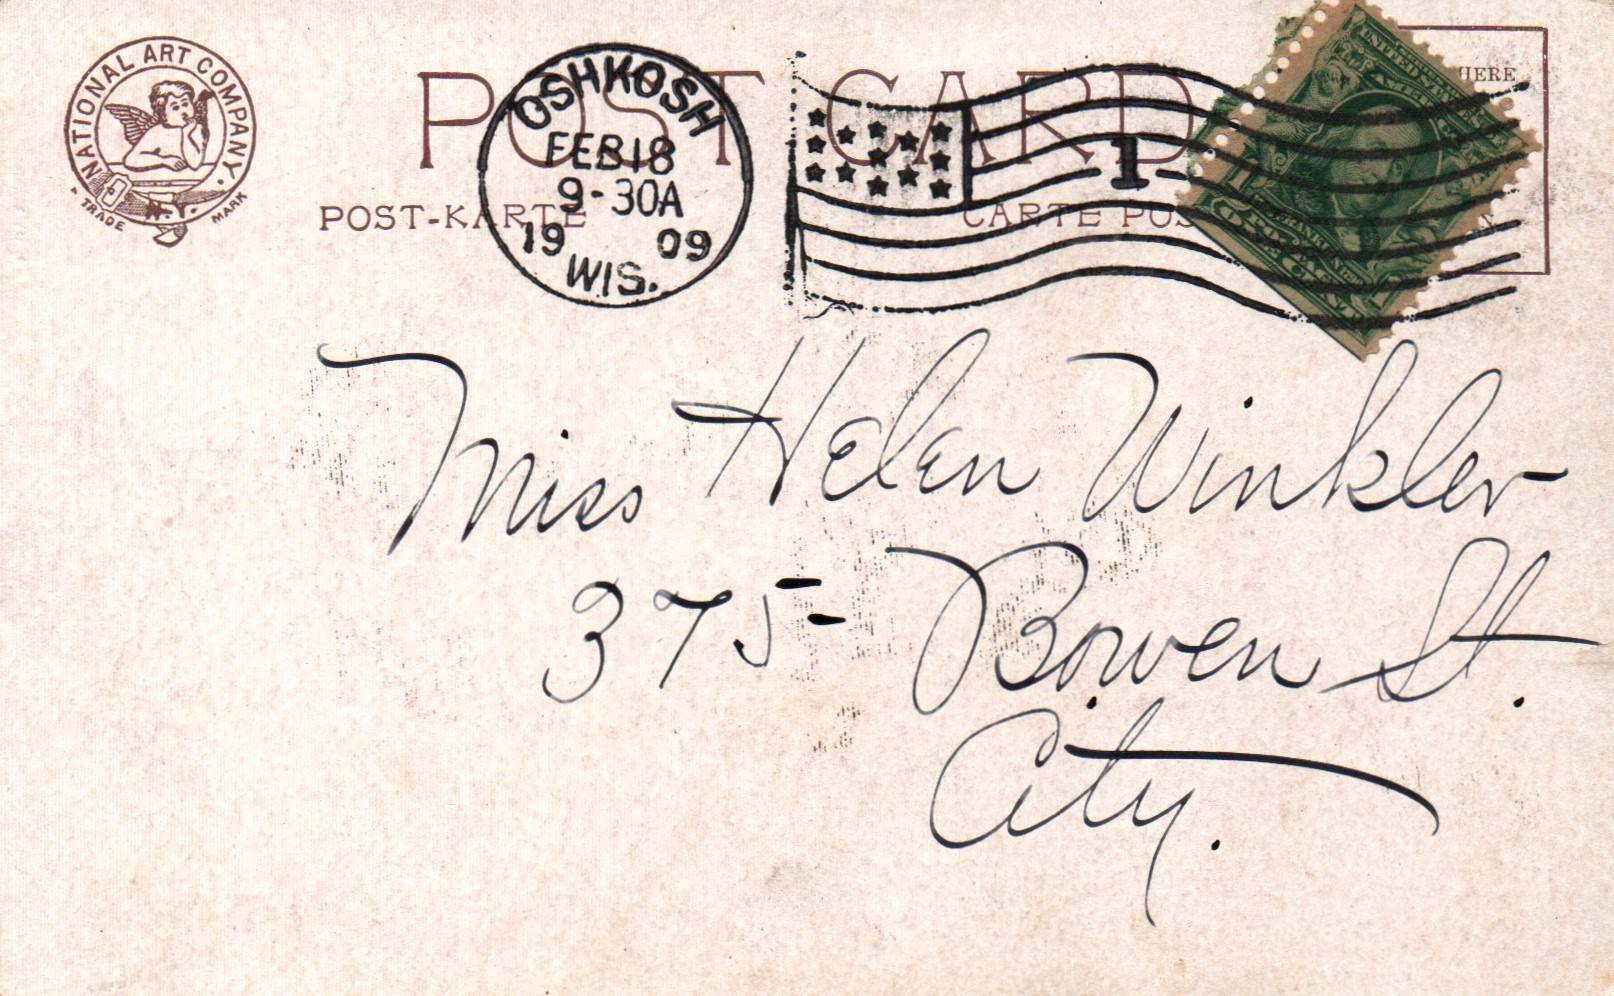 NATIONAL ART COMPANY.
N.Y.
TRADE MARK
POST CARD
POST-KARTE
CARTE POS
HERE
OSHKOSH
FEB 18
9-30A
19 09
WIS.
1
Miss Helen Winkler
375- Bowen St.
City.